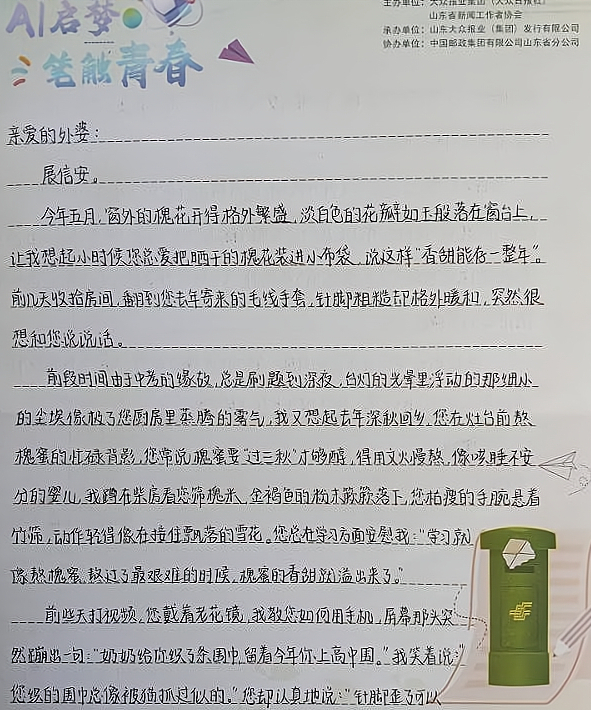 AI启梦
笔触青春
主办单位：大众报业集团（大众日报社）
山东省新闻工作者协会
承办单位：山东大众报业（集团）发行有限公司
协办单位：中国邮政集团有限公司山东省分公司
亲爱的外婆：
展信安。
今年五月，窗外的槐花开得格外繁盛，淡白色的花瓣如玉般落在窗台上，
让我想起小时候您总爱把晒干的槐花装进小布袋，说这样“香甜能存一整年”。
前几天收拾房间，翻到您去年寄来的毛线手套，针脚粗糙却格外暖和，突然很
想和您说说话。
前段时间由于中考的缘故，总是刷题到深夜，台灯的光晕里浮动的那细小
的尘埃像极了您厨房里蒸腾的雾气，我又想起去年深秋回乡，您在灶台前熬
槐蜜的忙碌背影，您常说槐蜜要“过三秋”才够醇，得用文火慢熬，像哄睡不安
分的婴儿，我蹲在柴房看您筛槐米，金褐色的粉末簌簌落下，您枯瘦的手腕悬着
竹筛，动作轻得像在接住飘落的雪花。您总在学习方面安慰我：“学习就
像熬槐蜜，熬过了最艰难的时候，槐蜜的香甜就溢出来了。”
前些天打视频，您戴着老花镜，我教您如何用手机，屏幕那头突
然蹦出一句：“奶奶给你织了条围巾，留着今年你上高中围。”我笑着说：“
您织的围巾总像被猫抓过似的。”您却认真地说：“针脚歪了可以